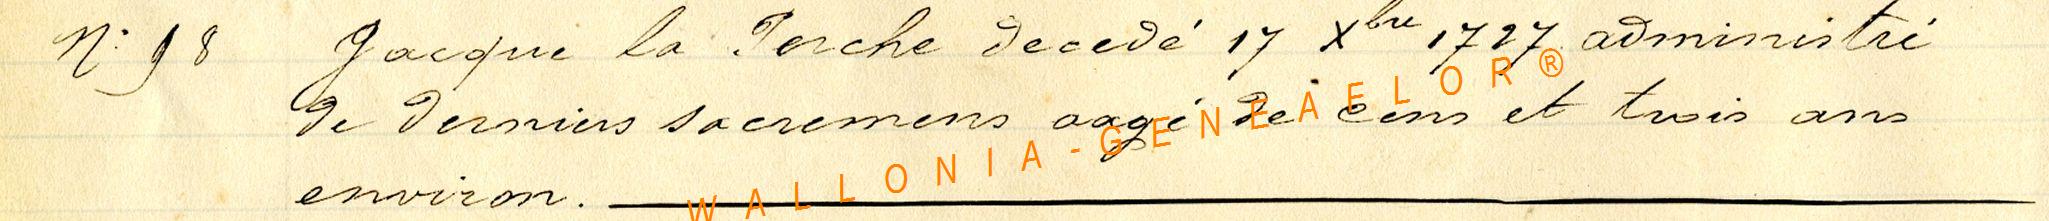 N° 98 Jacque la Perche decedé 17 Xbre 1727 administré
de derniers sacremens aagé de cens et trois ans
environ.
WALLONIA-GENEAELOR®